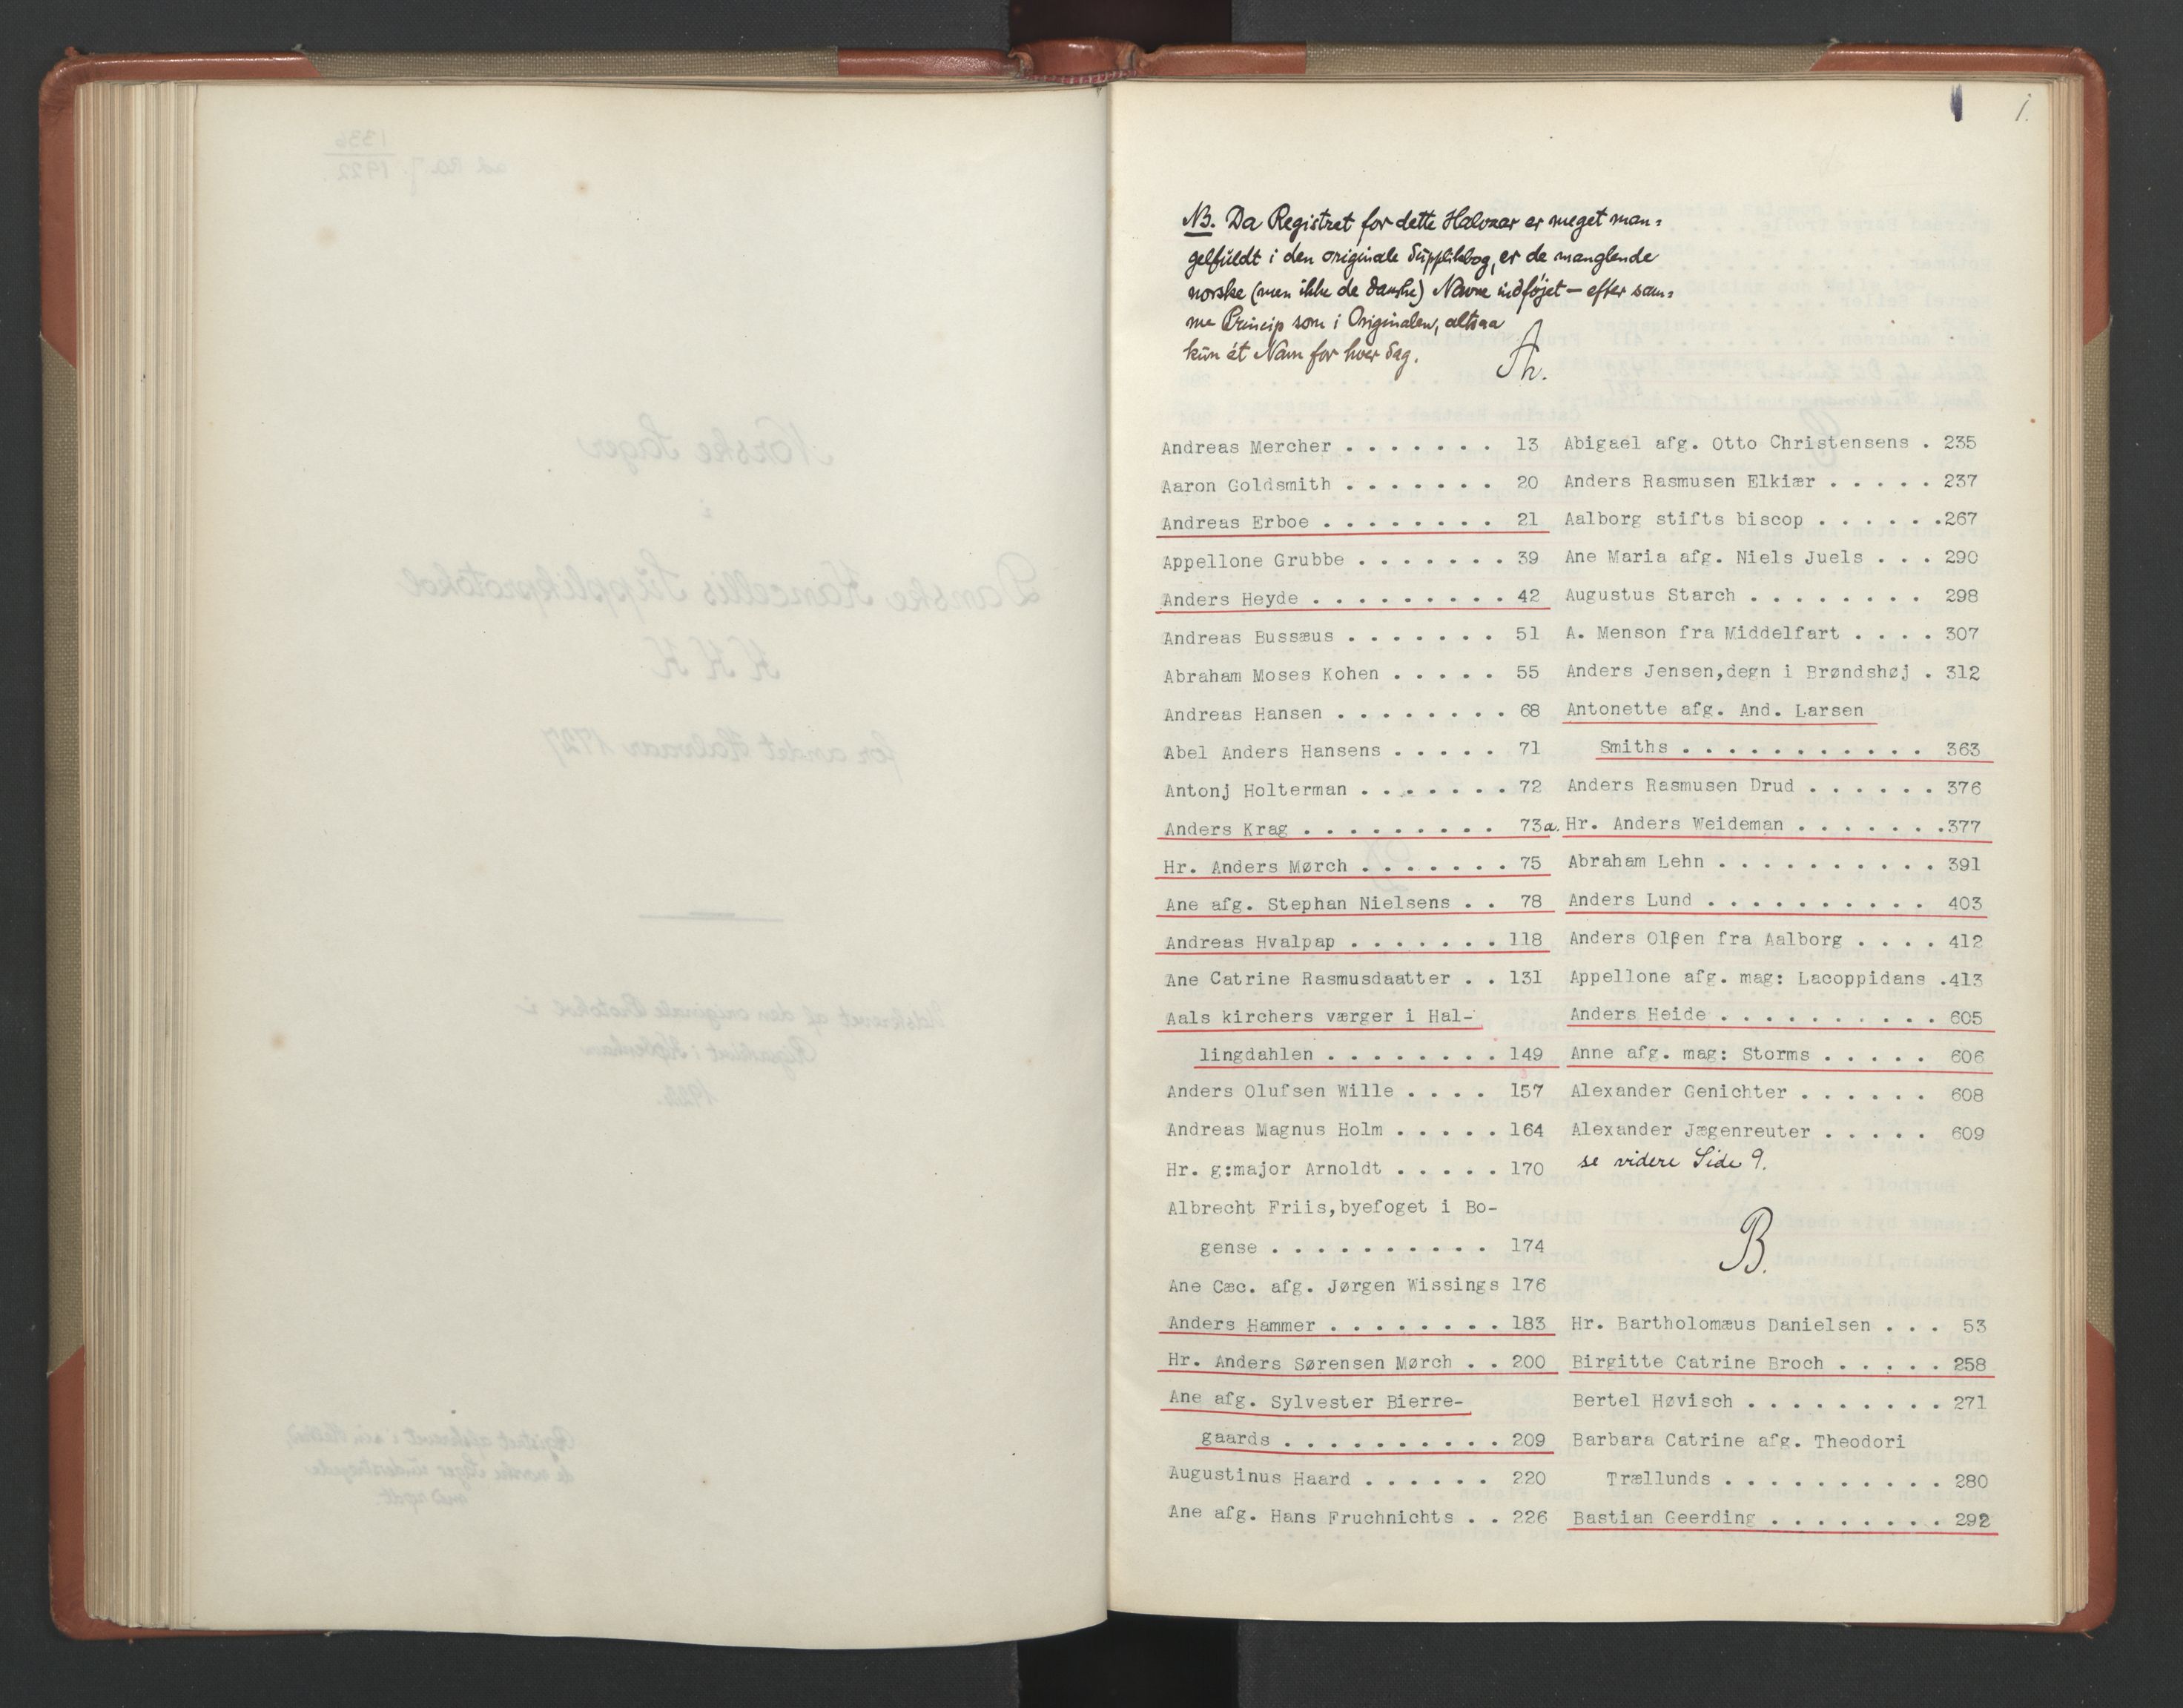 1.
NB. Da Registret for dette Halvaar er meget man-
gelfuldt i den originale Supplikbog, er de manglende
norske (men ikke de danske) Navne indføjet — efter sam-
me Princip som i Originalen, altsaa
kun ét Navn for hver Sag.
Andreas Mercher . . . . . . . 13
Aaron Goldsmith . . . . . . . 20
Andreas Erboe . . . . . . . . 21
Appellone Grubbe . . . . . . . 39
Anders Heyde . . . . . . . . . 42
Andreas Bussæus . . . . . . . 51
Abraham Moses Kohen . . . . . 55
Andreas Hansen . . . . . . . . 68
Abel Anders Hansens . . . . . 71
Antonj Holterman . . . . . . . 72
Anders Krag . . . . . . . . . 73a.
Hr. Anders Mørch . . . . . . . 75
Ane afg. Stephan Nielsens . . 78
Andreas Hvalpap . . . . . . . 118
Ane Catrine Rasmusdaatter . . 131
Aals kirchers værger i Hal-
lingdahlen . . . . . . . . 149
Anders Olufsen Wille . . . . 157
Andreas Magnus Holm . . . . . 164
Hr. g:major Arnoldt . . . . . 170
Albrecht Friis,byefoget i Bo-
gense . . . . . . . . . . 174
Ane Cæc. afg. Jørgen Wissings 176
Anders Hammer . . . . . . . . 183
Hr. Anders Sørensen Mørch . . 200
Ane afg. Sylvester Bierre-
gaards . . . . . . . . . . 209
Augustinus Haard . . . . . . 220
Ane afg. Hans Fruchnichts . . 226
Abigael afg. Otto Christensens . 235
Anders Rasmusen Elkiær . . . . . 237
Aalborg stifts biscop . . . . . .267
Ane Maria afg. Niels Juels . . . 290
Augustus Starch . . . . . . . . 298
A. Menson fra Middelfart . . . . 307
Anders Jensen,degn i Brøndshøj . 312
Antonette afg. And. Larsen
Smiths . . . . . . . . . . . 363
Anders Rasmusen Drud . . . . . . 376
Hr. Anders Weideman . . . . . . .377
Abraham Lehn . . . . . . . . . . 391
Anders Lund . . . . . . . . . . 403
Anders Olßen fra Aalborg . . . . 412
Appellone afg. mag: Lacoppidans .413
Anders Heide . . . . . . . . . . 605
Anne afg. mag: Storms . . . . . 606
Alexander Genichter . . . . . . 608
Alexander Jægenreuter . . . . . 609
se videre Side 9.
B.
Hr. Bartholomæus Danielsen . . . 53
Birgitte Catrine Broch . . . . . 258
Bertel Høvisch . . . . . . . . . 271
Barbara Catrine afg. Theodori
Trællunds . . . . . . . . . . 280
Bastian Geerding . . . . . . . . 292